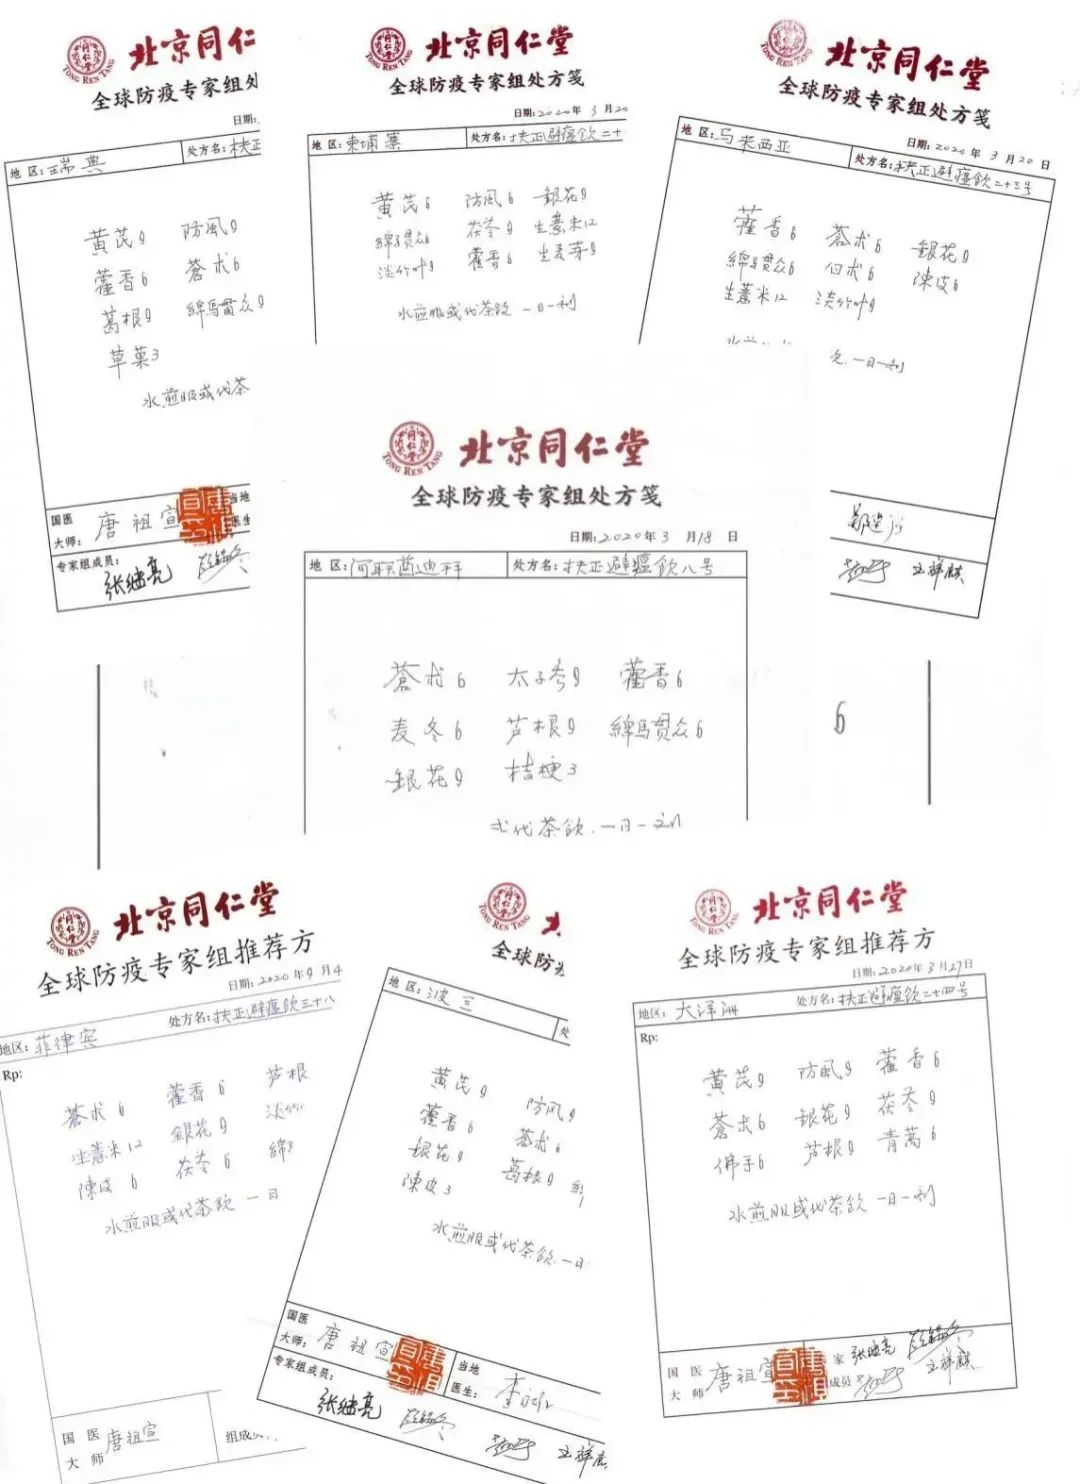 北京同仁
TONG REN TANG
全球防疫专家组处
日期:
地 区: 瑞典 处方名: 扶正
黄芪9 防風9
藿香6 蒼术6
葛根9 綿馬贯众9
草菓3
水煎服或代茶
国医大师: 唐祖宣 当地医生
专家组成员: 张继亮
北京同仁堂
TONG REN TANG
全球防疫专家组处方笺
日期: 2020年3月20
地 区: 柬埔寨 处方名: 扶正避瘟飲二十
黄芪6 防風6 銀花9
綿馬贯众6 茯苓9 生薏米12
淡竹叶9 藿香6 生麦芽9
水煎服或代茶飲 一日一剂
北京同仁堂
TONG REN TANG
全球防疫专家组处方笺
日期: 2020年3月20日
地 区: 马来西亚 处方名: 扶正避瘟飲二十三号
藿香6 蒼术6 銀花9
綿馬贯众6 白术6 陳皮6
生薏米12 淡竹叶9
一日一剂
王祥麒
北京同仁堂
TONG REN TANG
全球防疫专家组处方笺
日期: 2020年3月18日
地 区: 阿联酋迪拜 处方名: 扶正避瘟飲八号
蒼术6 太子参9 藿香6
麦冬6 芦根9 綿馬贯众6
銀花9 桔梗3
代茶飲.一日一剂
6
北京同仁堂
TONG REN TANG
全球防疫专家组推荐方
日期: 2020年9月4
地区: 菲律宾 处方名: 扶正避瘟飲三十八
Rp:
蒼术6 藿香6 芦根
生薏米12 銀花9 淡竹
陳皮6 茯苓6 綿
水煎服或代茶飲 一日
国医大师 唐祖宣 组成
TONG REN TANG
全球防
地 区: 波兰 处
黄芪9 防风9
藿香6 蒼术6
銀花9 葛根9
陳皮3
水煎服或代茶飲.一日
国医大师: 唐祖宣 当地医生:
专家组成员: 张继亮
王祥麒
北京同仁堂
TONG REN TANG
全球防疫专家组推荐方
日期: 2020年3月27日
地区: 大洋洲 处方名: 扶正避瘟飲二十四号
Rp:
黄芪9 防風9 藿香6
蒼术6 銀花9 茯苓9
佛手6 芦根9 青蒿6
水煎服或代茶飲 一日一剂
国医大师 唐祖宣 家成员 张继亮 王祥麒